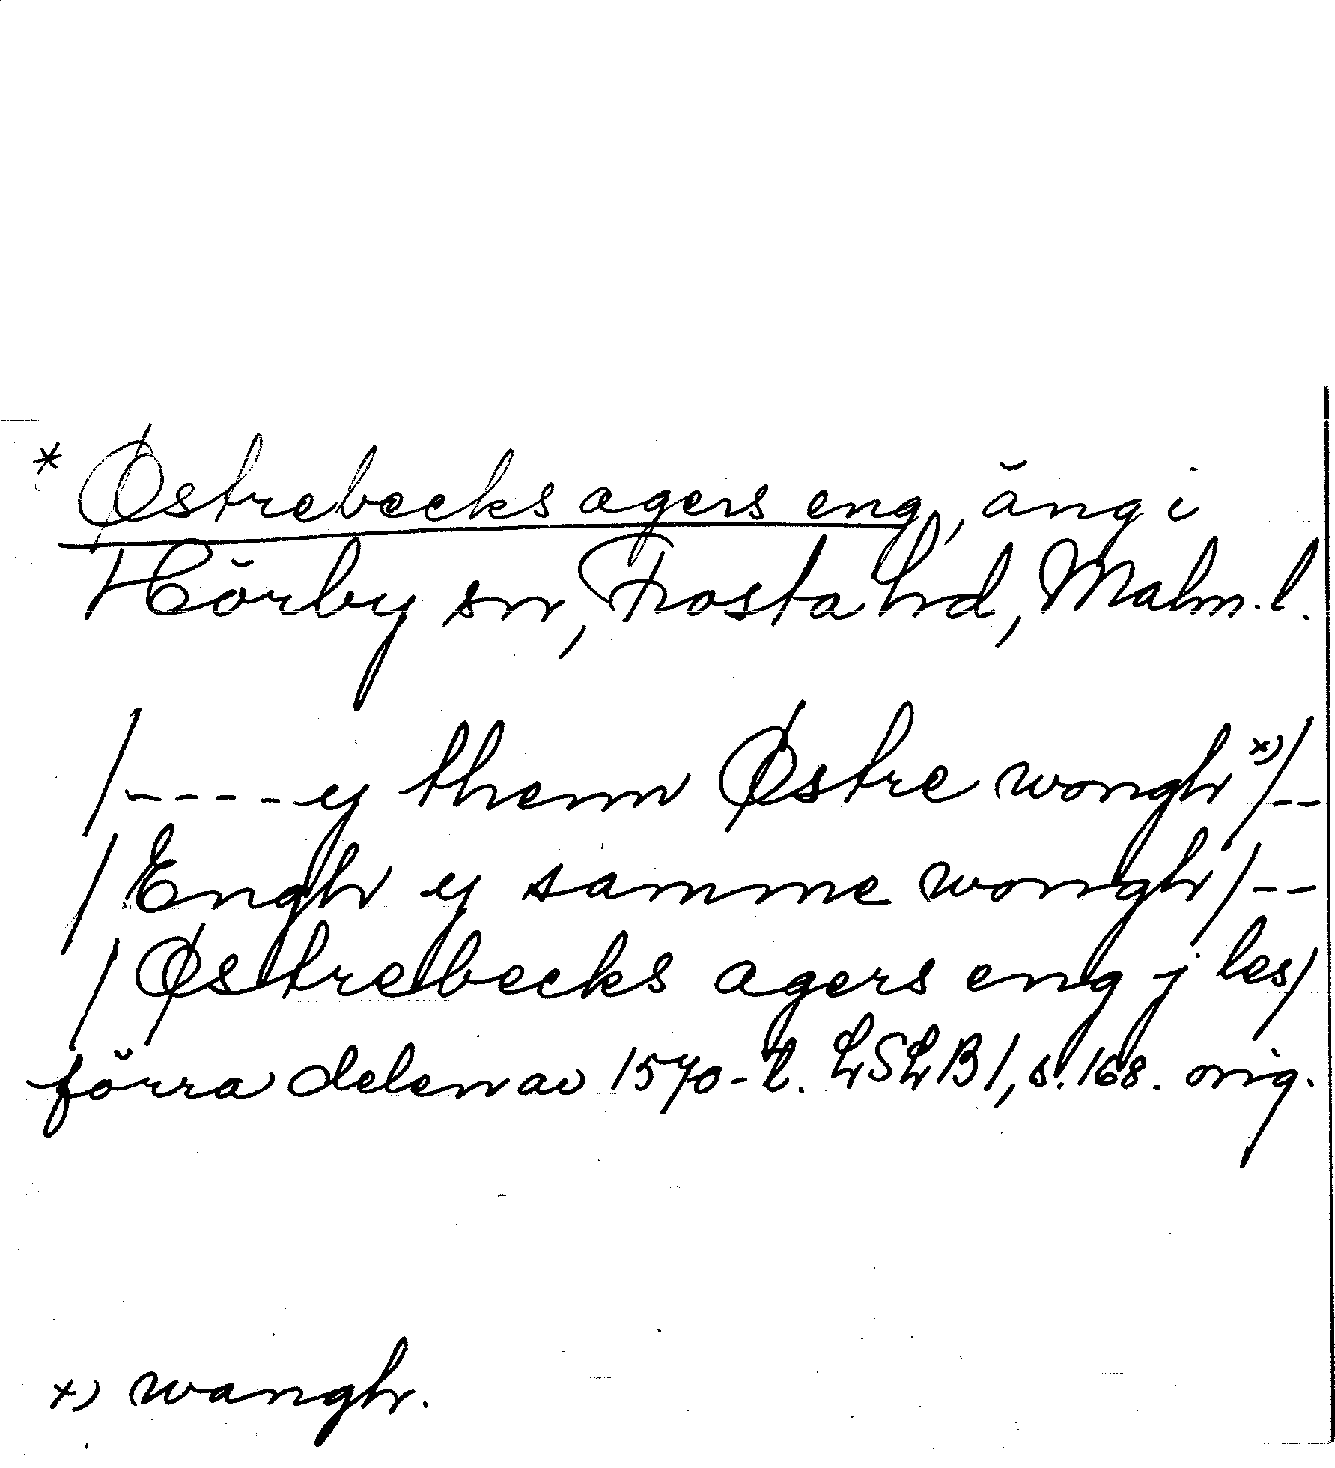 * Østrebecks agers eng, äng i
Hörby sn, Frosta hd, Malm. l.
/----y thenn Østre wongh x)/--
/Engh y samme wongh/--
/Østrebecks agers eng j les/
förra delen av 1570-t. LSLB 1, s. 168. orig.
x) wangh.